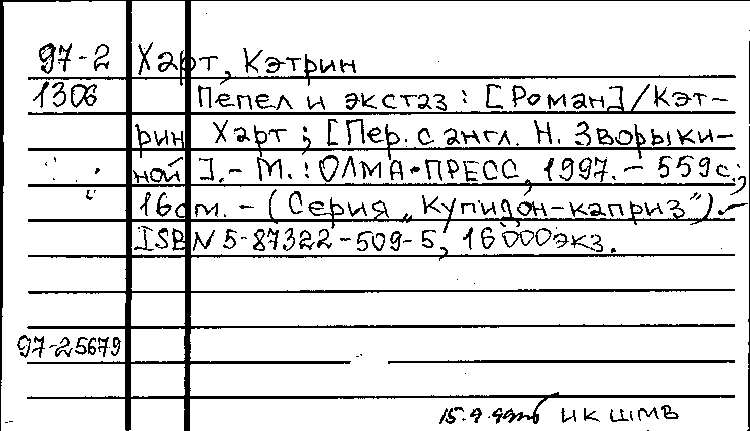 97-2 Харт, Кэтрин
1306 Пепел и экстаз : [Роман] / Кэт-
рин Харт ; [Пер. с англ. Н. Зворыки-
ной]. - М. : ОЛМА-ПРЕСС, 1997. - 559 с.;
16 см. - (Серия „Купидон-каприз"). -
ISBN 5-87322-509-5, 16000 экз.
97-25679
ИК ШМВ